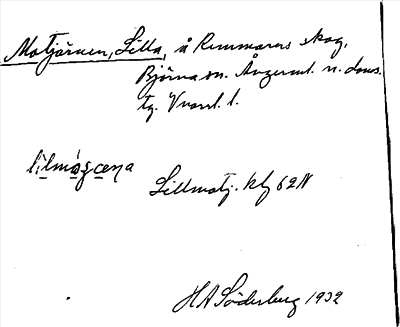 Motjärnen, Lilla, å Remmarns skog,
Björna sn. Ångerml. n. doms.
tg. Vvand. l.
lilmoscena
Lillmotj. kbl 62 N
HA Söderberg 1932